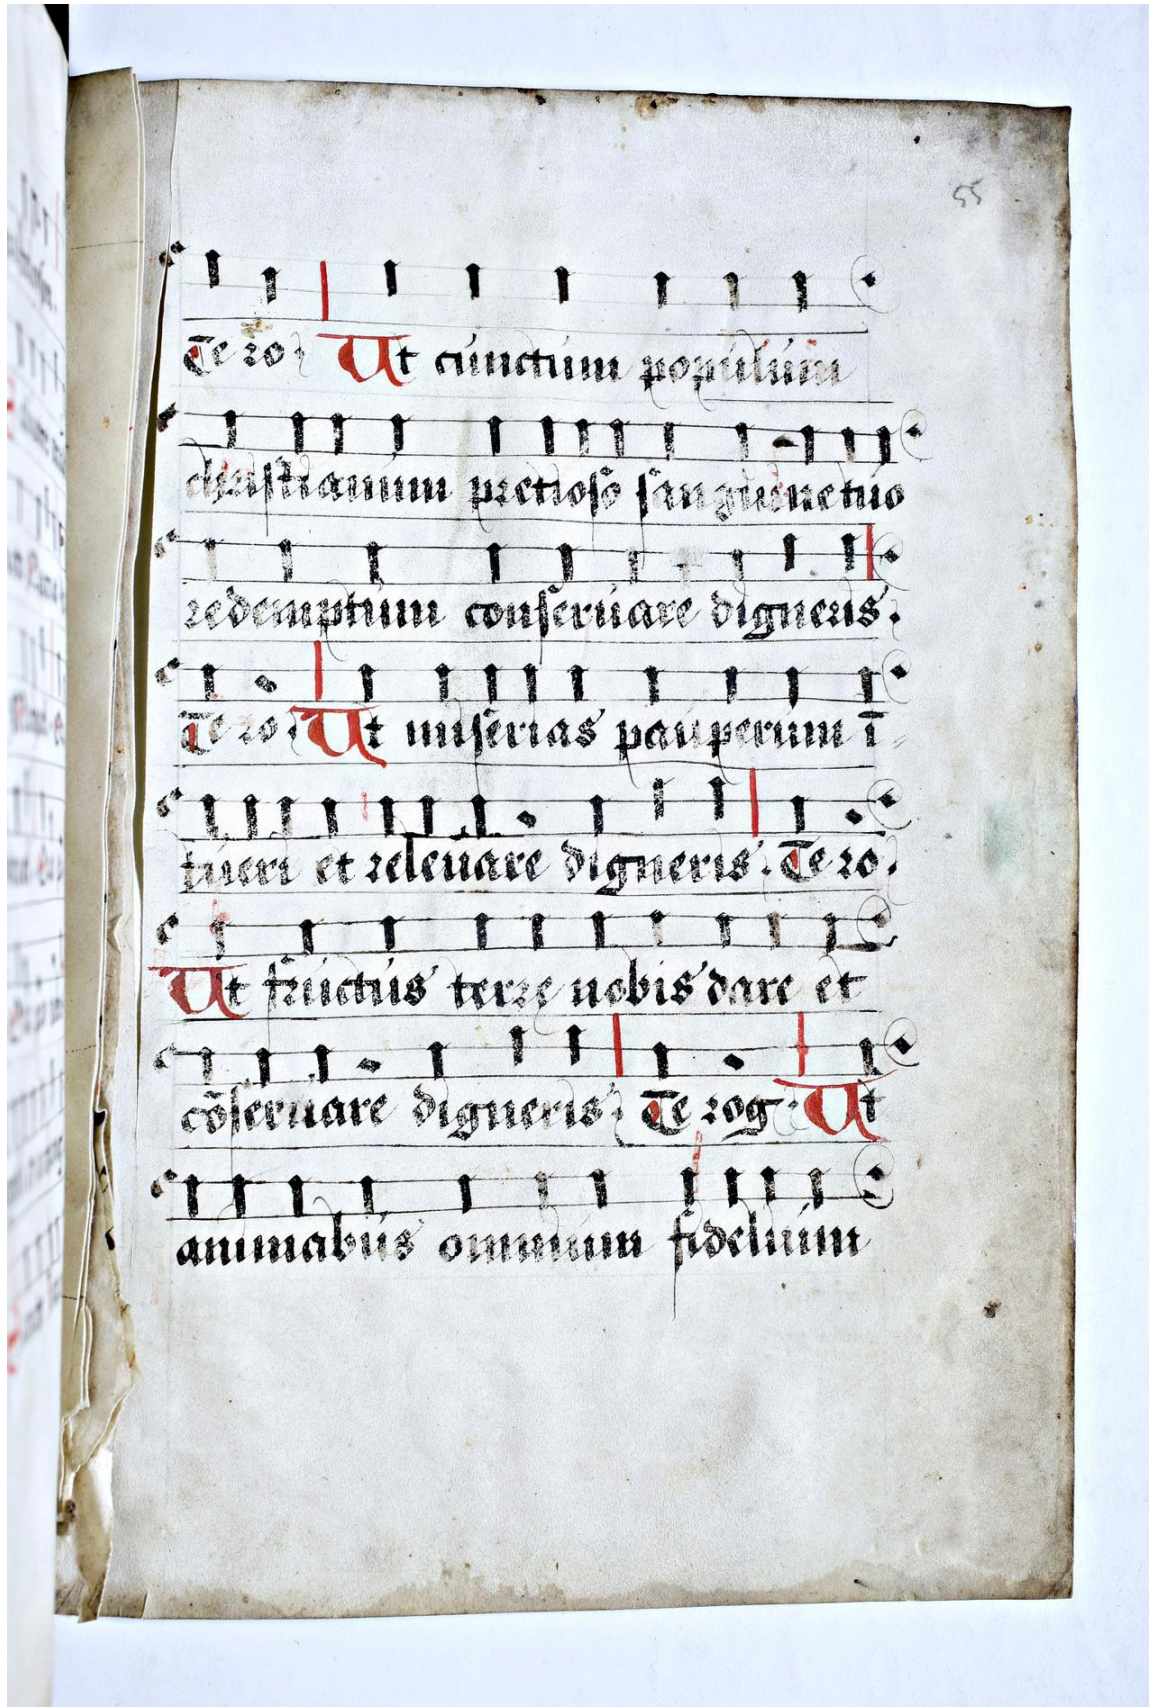 55
Te ro. Ut cunctum populum
christianum pretioso sanguine tuo
redemptum conseruare digneris.
Te ro. Ut miserias pauperum ī-
tueri et releuare digneris. Te ro.
Ut fructus terrę nobis dare et
cōseruare digneris. Te rog. Ut
animabus omnium fidelium